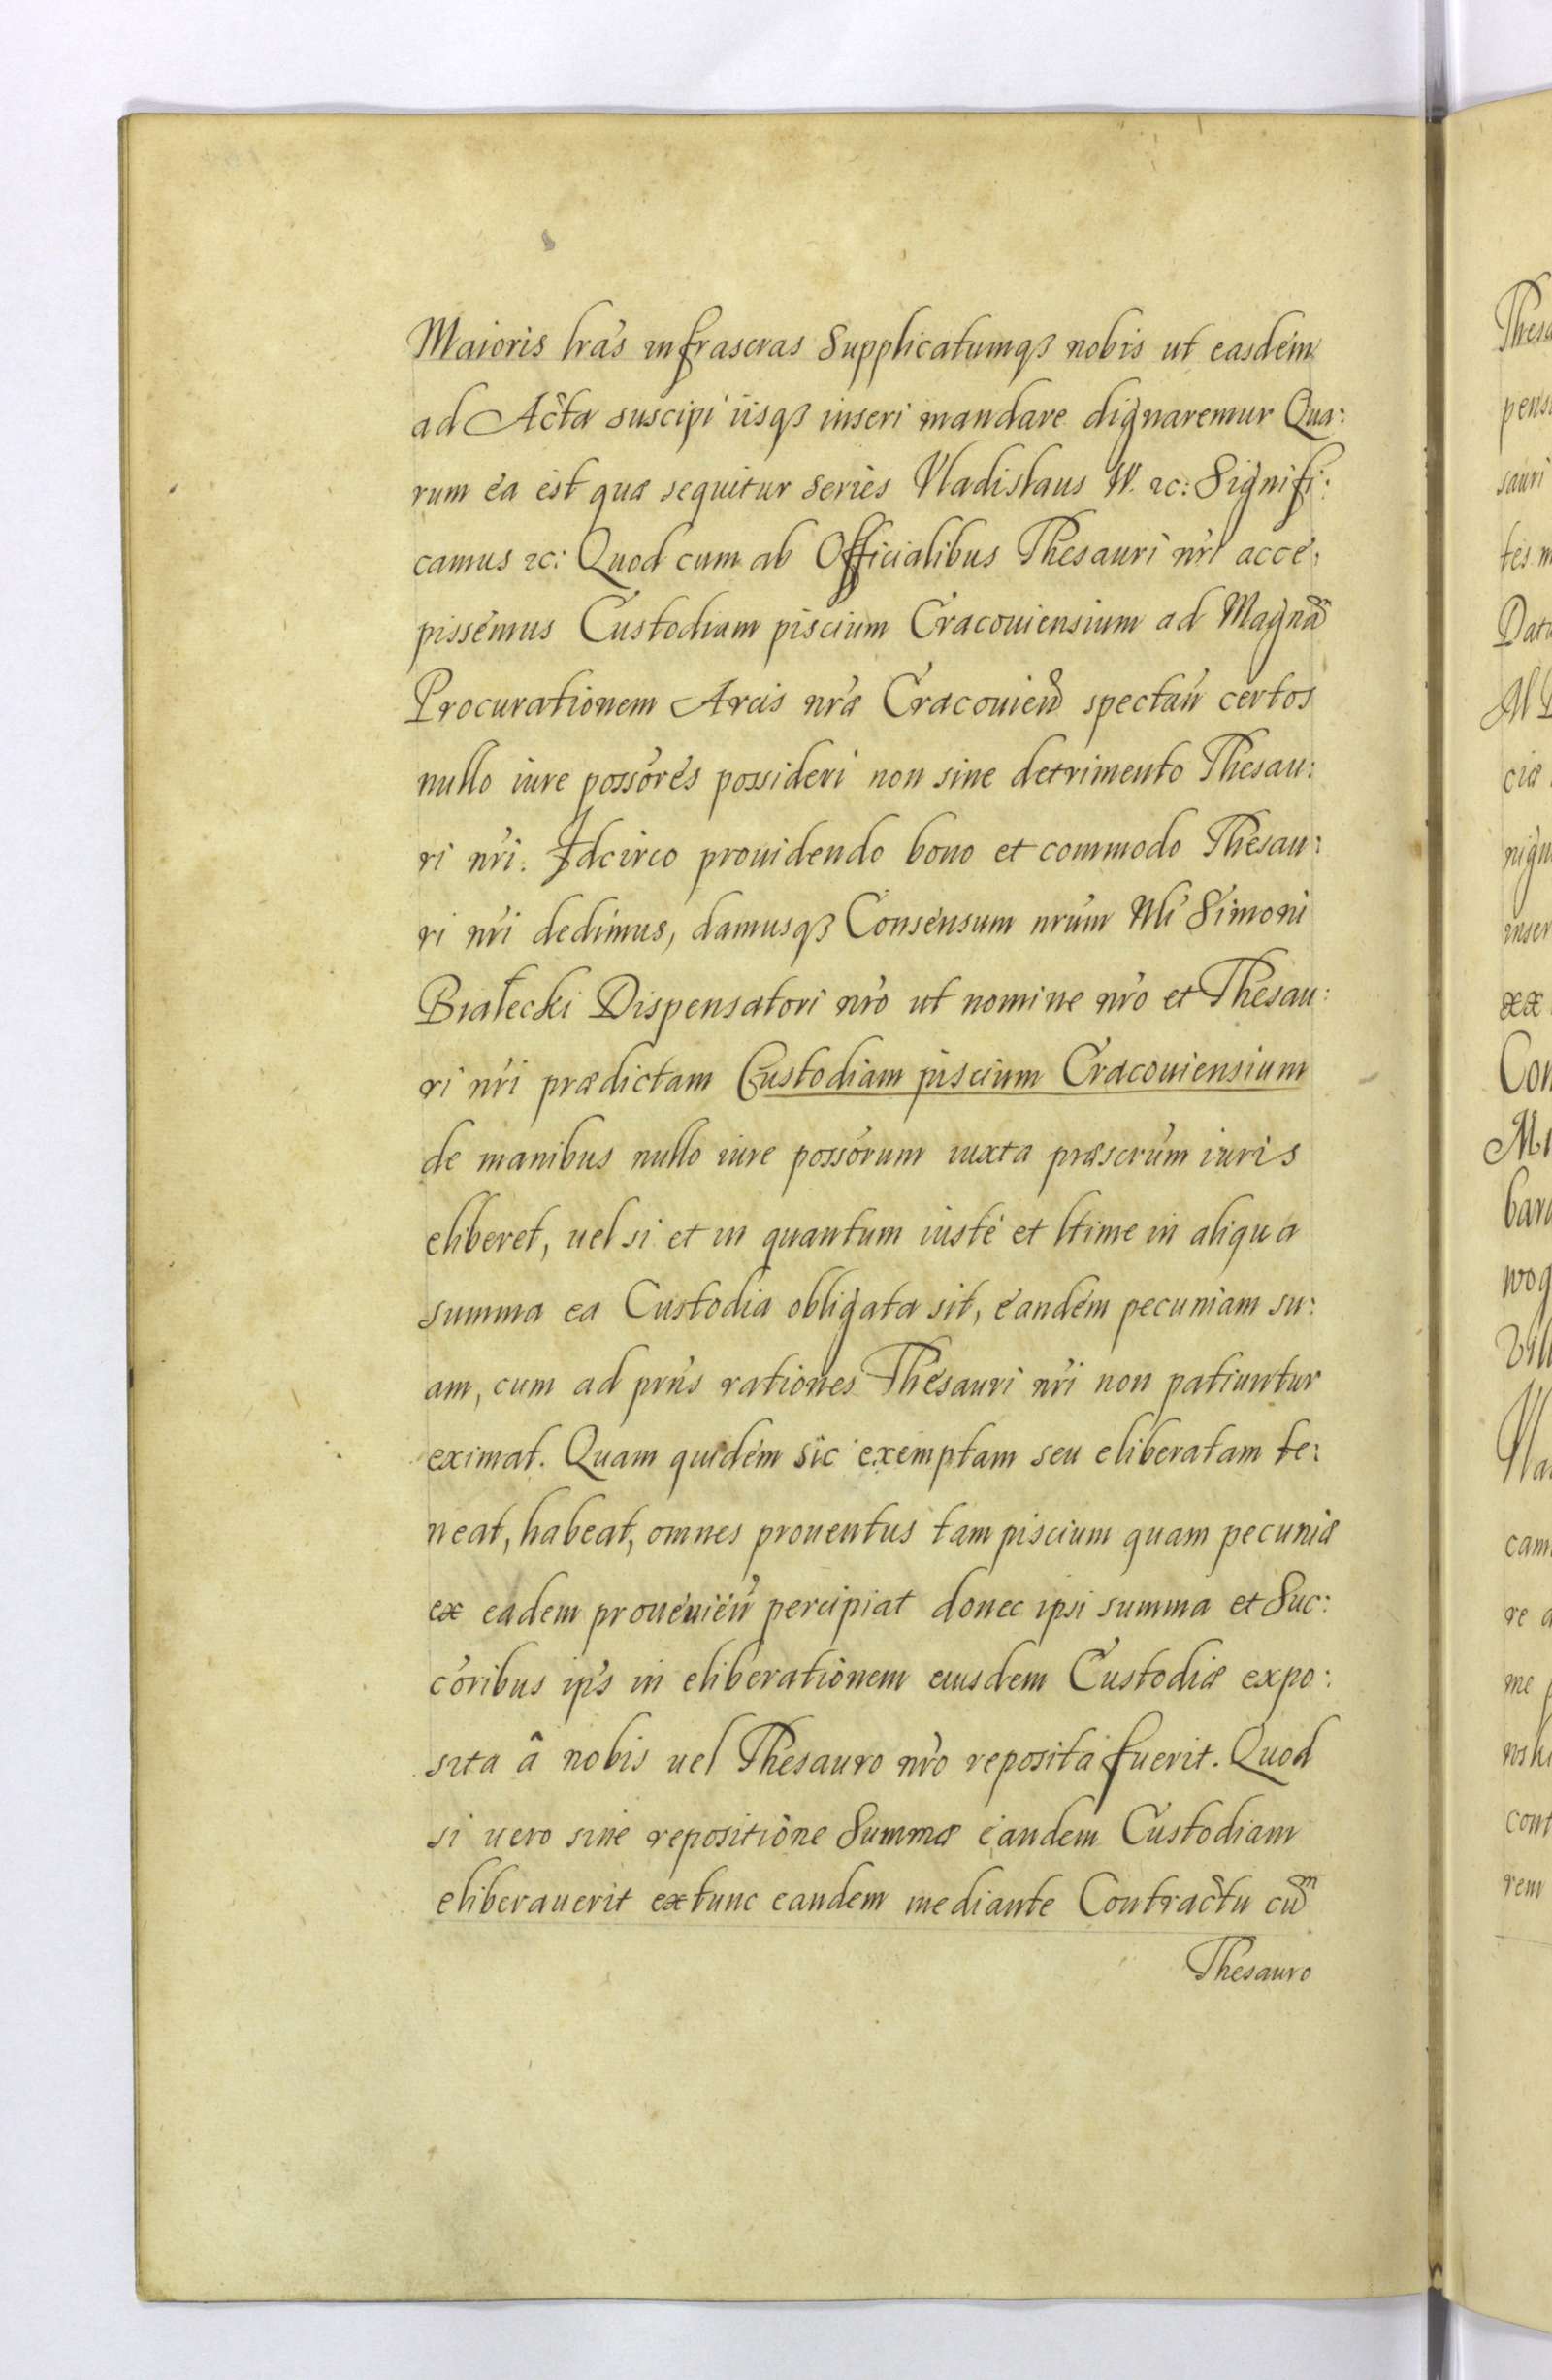 Maioris lrás infrascras Supplicatumqꝫ nobis ut easdém
ad Acta suscipi iisqꝫ inseri mandare dignaremur Qua:
rum éa ést quæ sequitur Seriés Vladislaus IV. ꝛc: Signifi:
camus ꝛc: Quod cum ab Officialibus Thesauri nri accé:
pissémus Custodiam piscium Cracouiensium ad Magnã
Procurationem Arcis nræ Cracouień spectań certos
nullo iure possóres possideri non sine detrimento Thesau:
ri nri. Idcirco prouidendo bono et commodo Thesau:
ri nri dedimus, damusqꝫ Consensum nrum Mli Simoni
Białecki Dispensatori nro ut nomine nro et Thesau:
ri nri prædictam Custodiam piscium Cracouiensium
de manibus nullo iure possórum iuxta præscrúm iuris
eliberet, uel si et in quantum iusté et ltime in aliqua
summa ea Custodia obligata sit, éandém pecuniam su:
am, cum ad prńs rationes Thesauri nri non patiuntur
eximat. Quam quidém sic exemptam seu eliberatam te:
neat, habeat, omnes prouentus tam piscium quam pecuniæ
ex eadem prouénień percipiat donec ipsi summa et Suc:
córibus ips in eliberationem eiusdem Custodiæ expo:
sita â nobis uel Thesauro nro reposita fuerit. Quod
si uero sine repositione Summæ éandem Custodiam
eliberauerit extunc eandem mediante Contractu cũ
Thesauro